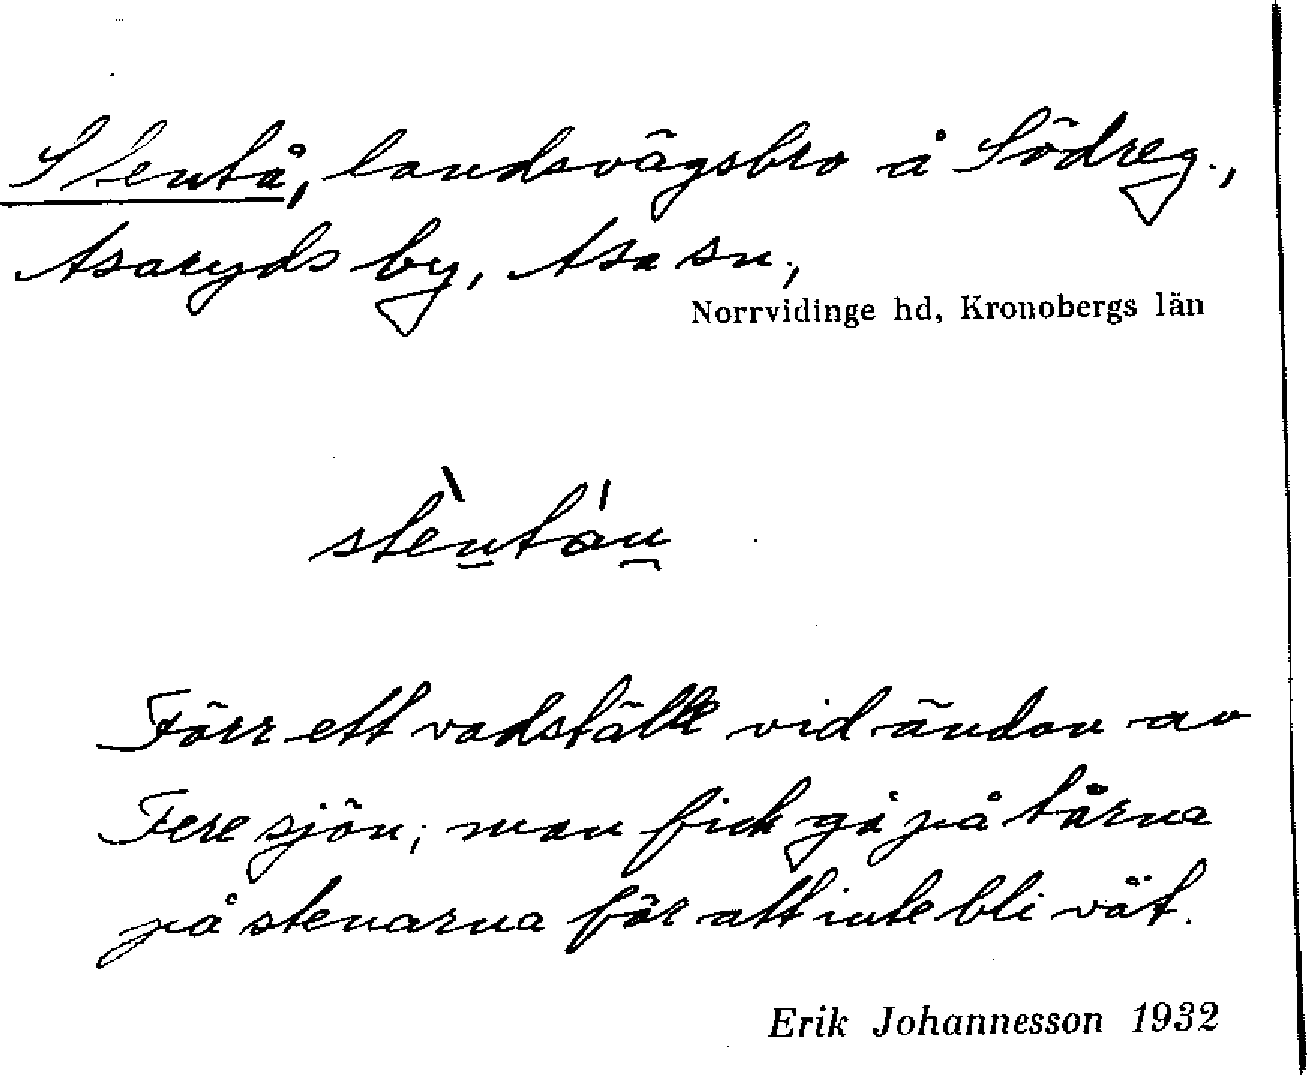 Stentå, landsvägsbro å Södreg.,
Asaryds by, Asa sn.,
Norrvidinge hd, Kronobergs län
stèntán
Förr ett vadställe vid ändan av
Feresjön; man fick gå på tårna
på stenarna för att inte bli våt.
Erik Johannesson 1932